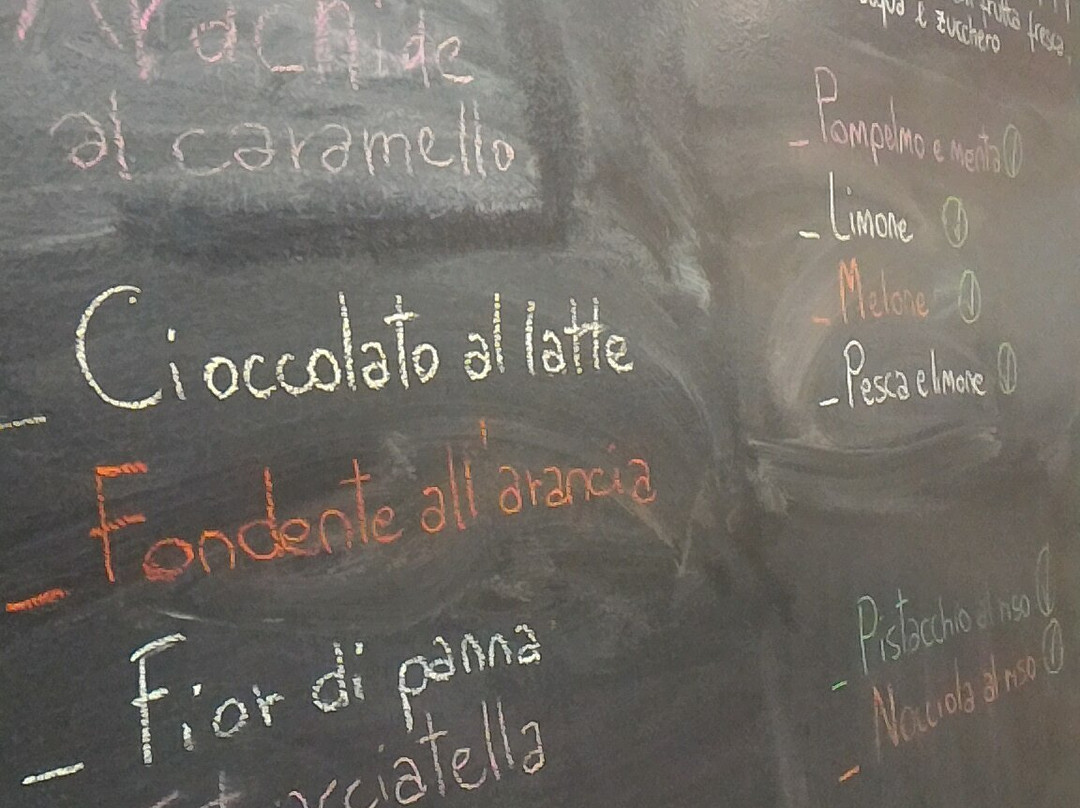 Arachide
al caramello
- Cioccolato al latte
- Fondente all'arancia
- Fior di panna
Stracciatella
frutta fresca,
acqua e zucchero
- Pompelmo e menta
- Limone
- Melone
- Pesca e limone
- Pistacchio al riso
- Nocciola al riso